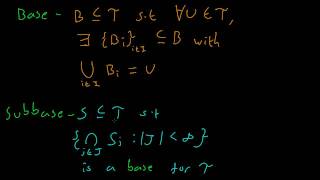 Base - B ⊆ τ s.t ∀U ∈ τ,
∃ {Bi}i∈I ⊆ B with
⋃i∈I Bi = U
Subbase - S ⊆ τ s.t
{⋂i∈J Si : |J| < ∞}
is a base for τ